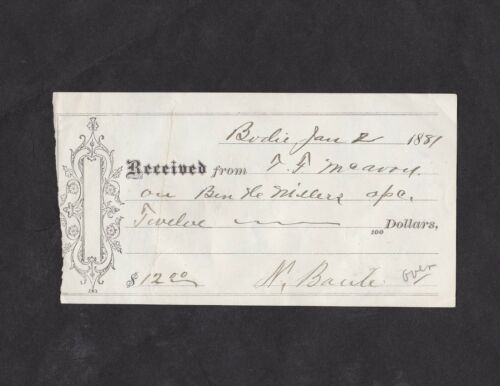 Bodie, Jan 2 1881
Received from T. F. McAvoy
on Ben He Millers a/c.
Twelve 100 Dollars,
$12.00 N. Baute over